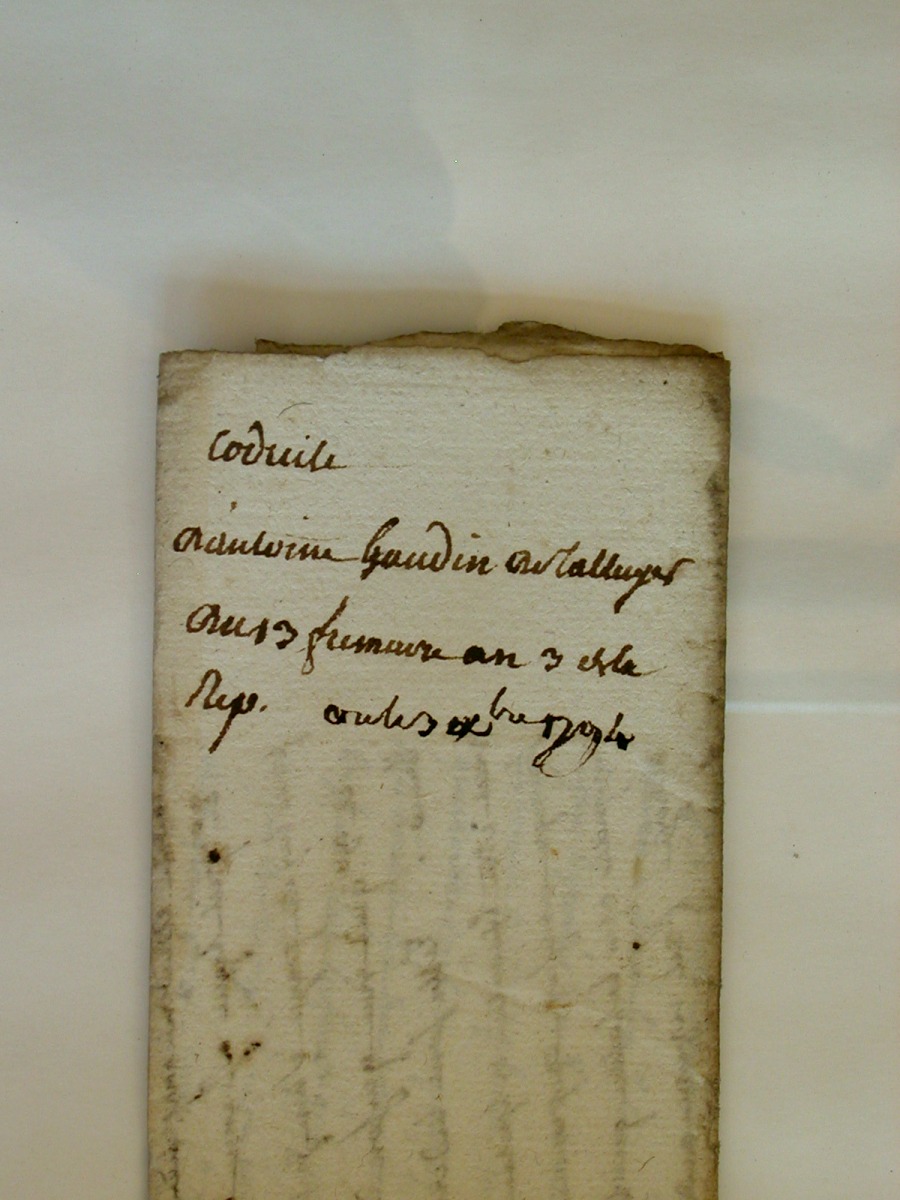 Codicile
d'antoine Gaudin de Talluyer
du 13 frimaire an 3 de la
Rep. ou le 3 Xbre 1794